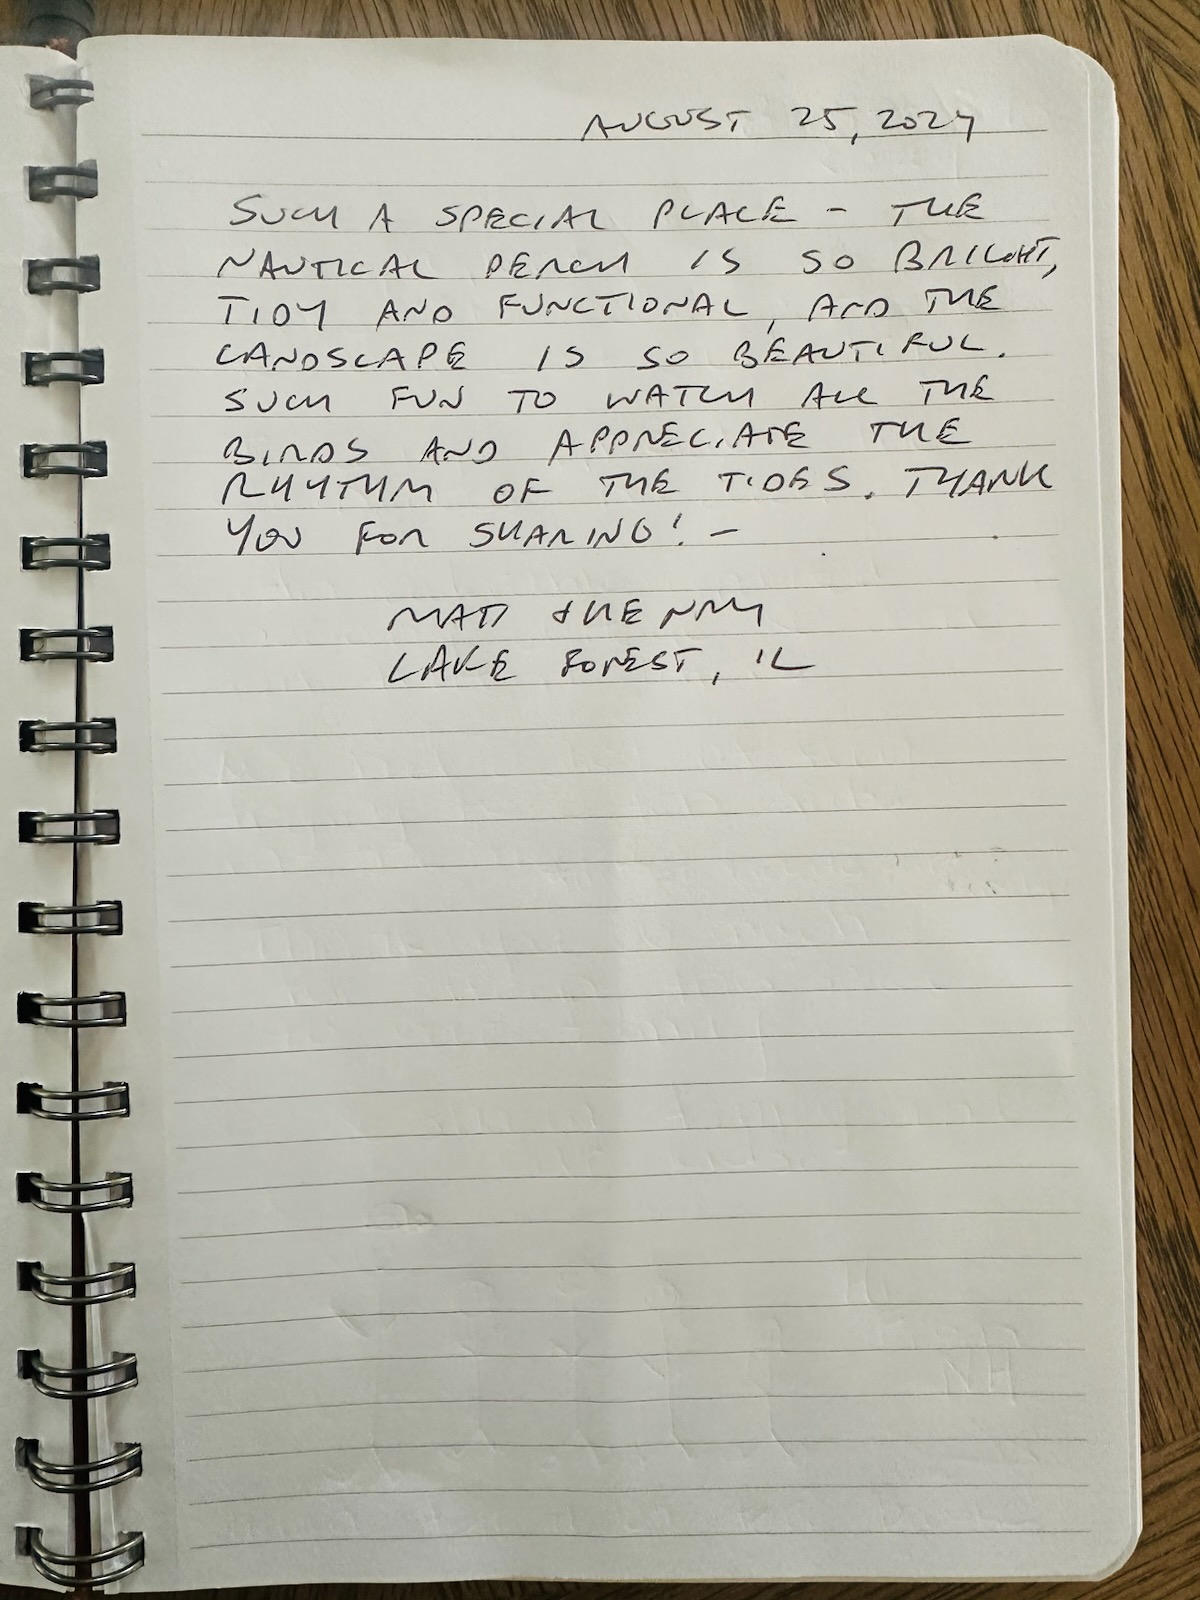 AUGUST 25, 2024
SUCH A SPECIAL PLACE - THE
NAUTICAL PERCH IS SO BRIGHT,
TIDY AND FUNCTIONAL, AND THE
LANDSCAPE IS SO BEAUTIFUL.
SUCH FUN TO WATCH ALL THE
BIRDS AND APPRECIATE THE
RHYTHM OF THE TIDES. THANK
YOU FOR SHARING! -
LAKE FOREST, IL